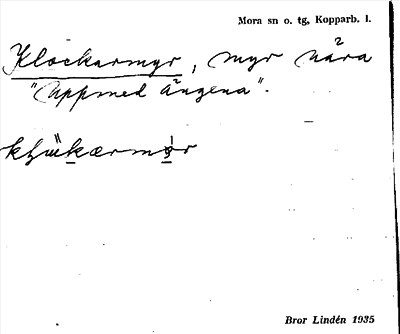 Mora sn o. tg, Kopparb. l.
Klockarmyr, myr nära
"Uppmed Ängena".
Bror Lindén 1935